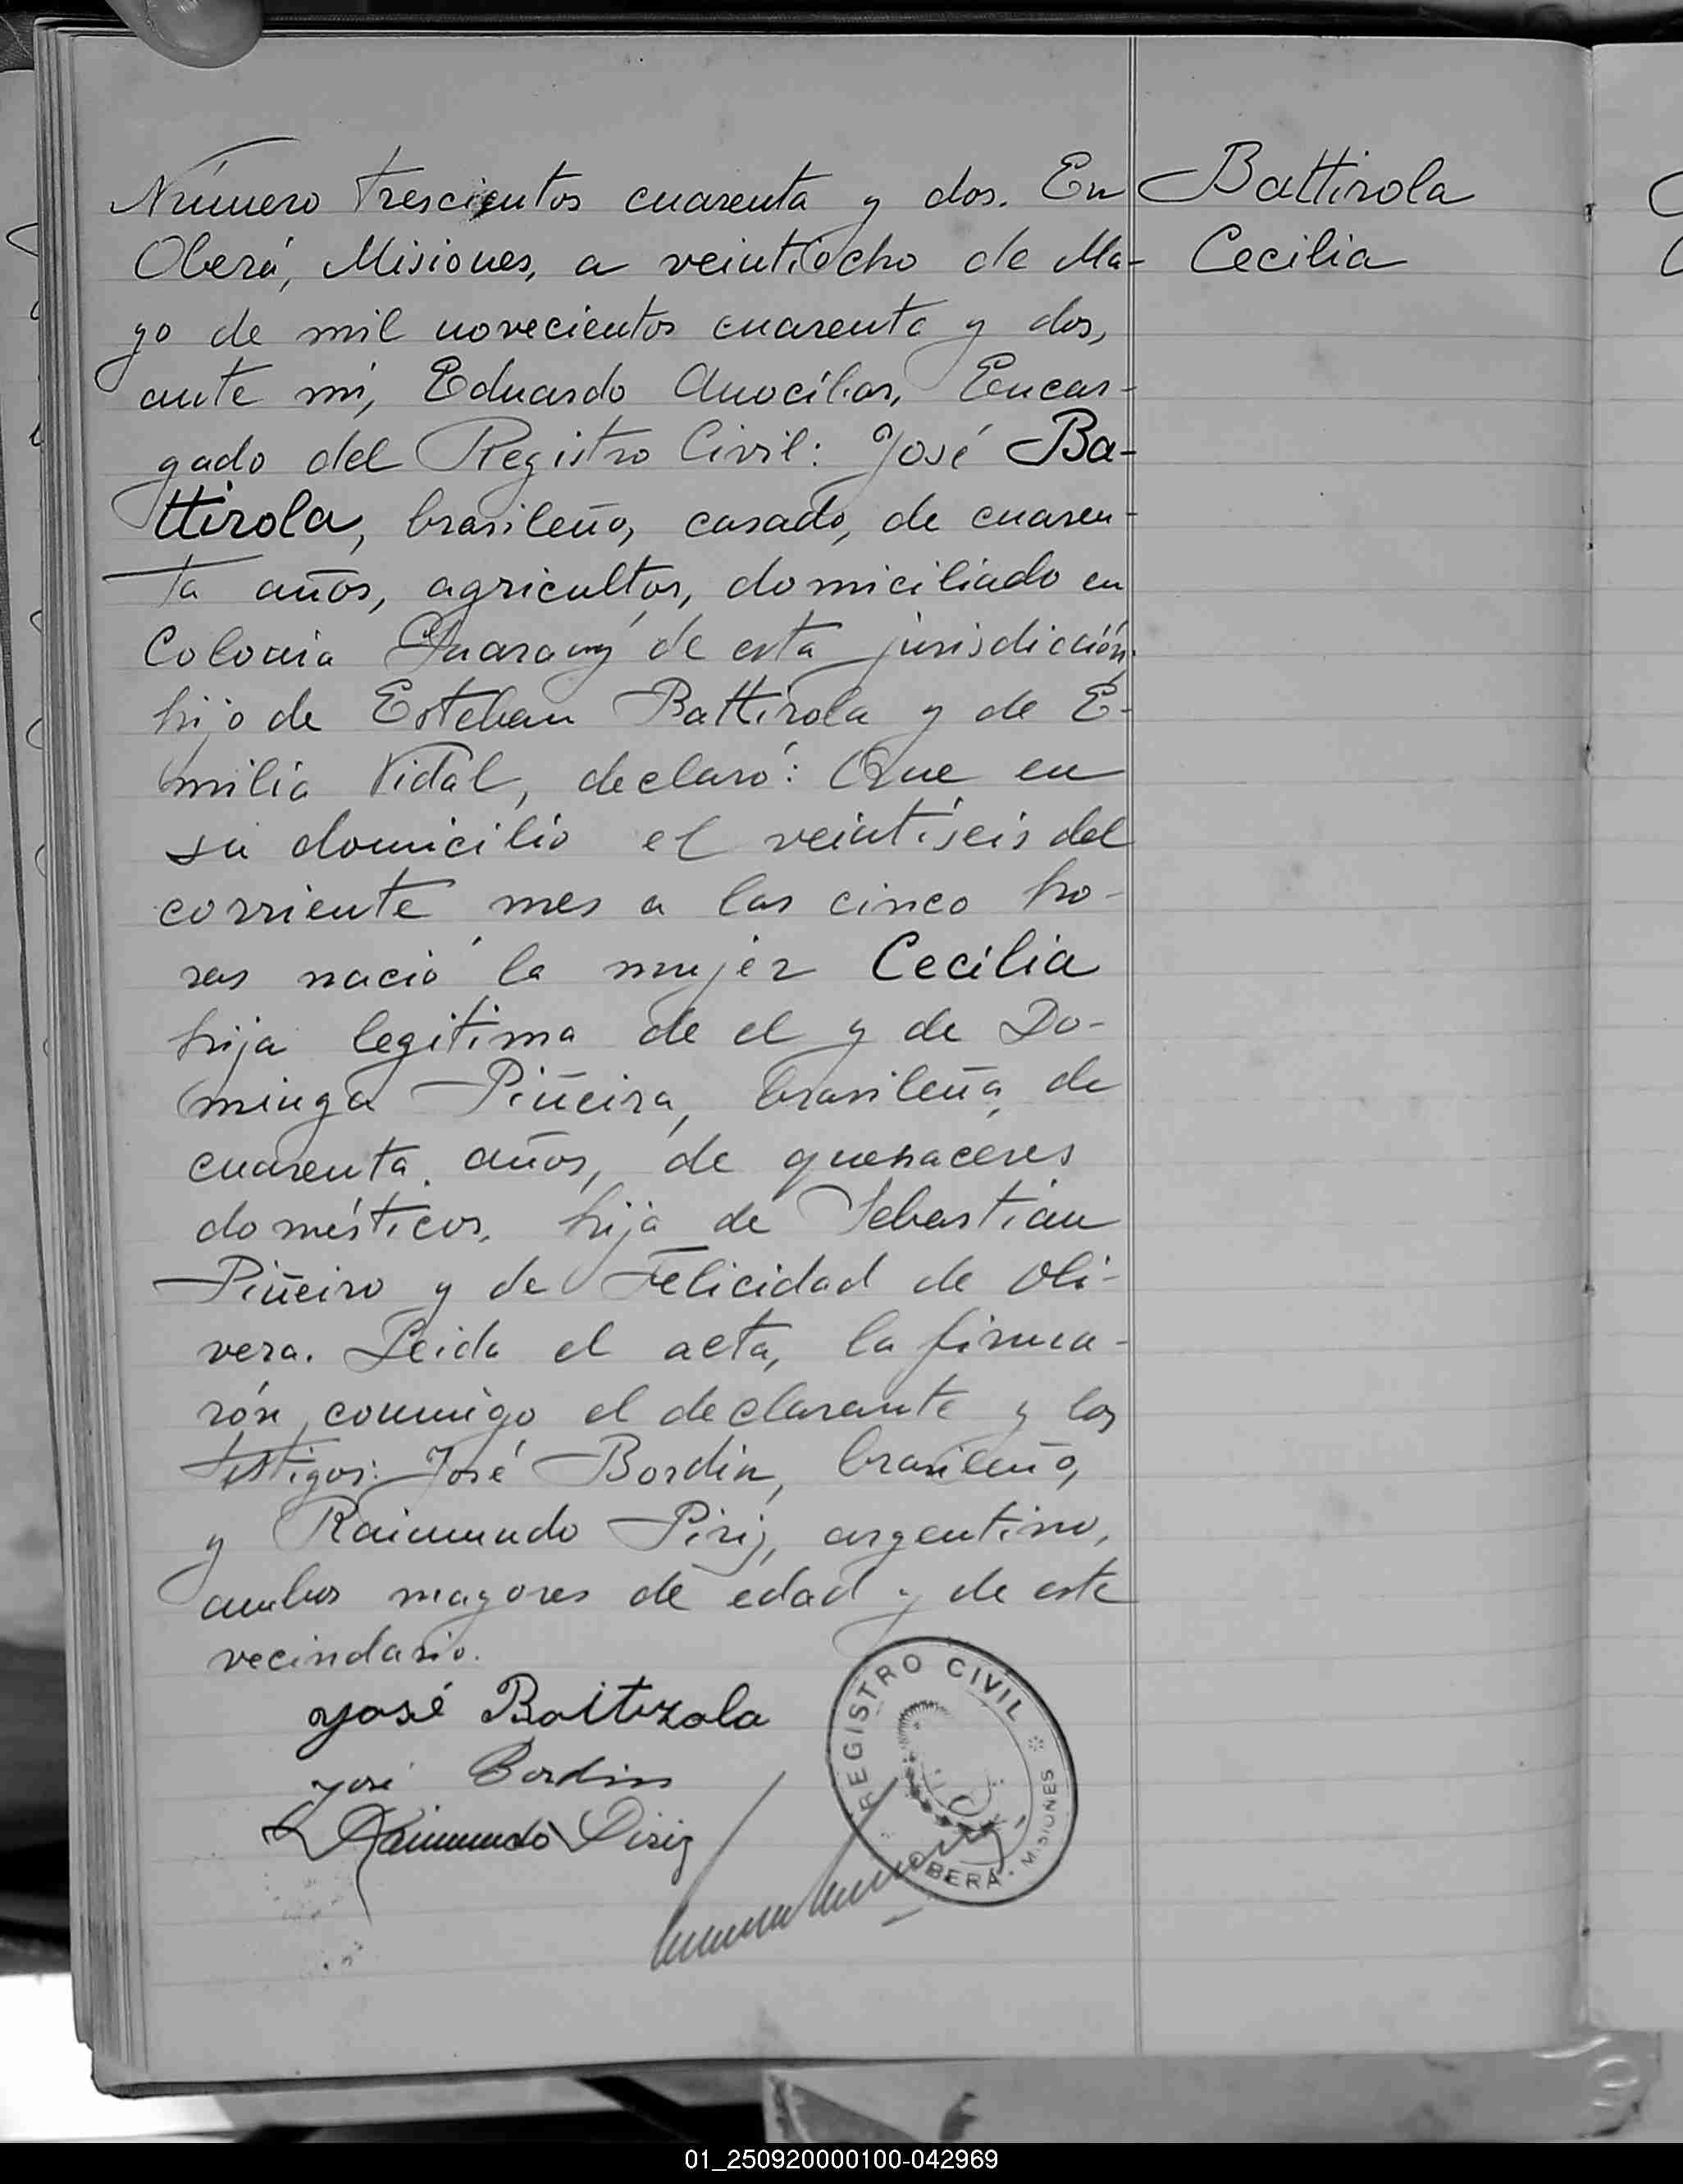 Número trescientos cuarenta y dos. En
Oberá, Misiones, a veintiocho de Ma-
yo de mil novecientos cuarenta y dos,
ante mi, Eduardo Anocíbar, Encar-
gado del Registro Civil: José Ba-
ttirola, brasileño, casado, de cuaren-
ta años, agricultor, domiciliado en
Colonia Guarany de esta jurisdicción,
hijo de Esteban Battirola y de E-
milia Vidal, declaró: Que en
su domicilio el veintiseis del
corriente mes a las cinco ho-
ras nació la mujer Cecilia
hija legitima de el y de Do-
minga Piñeira, brasileña, de
cuarenta años, de quehaceres
domésticos, hija de Sebastián
Piñeiro y de Felicidad de Oli-
vera. Leida el acta, la firma-
rón, conmigo el declarante y los
testigos: José Bordin, brasileño,
y Raimundo Piriz, argentino,
ambos mayores de edad y de este
vecindario.
José Battirola
José Bordin
Raimundo Piriz
REGISTRO CIVIL
OBERÁ - MISIONES
Battirola
Cecilia
01_250920000100-042969